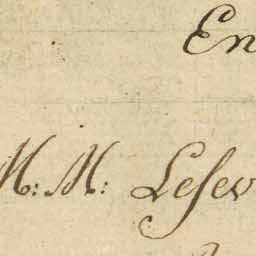 En
M: M: Lesev